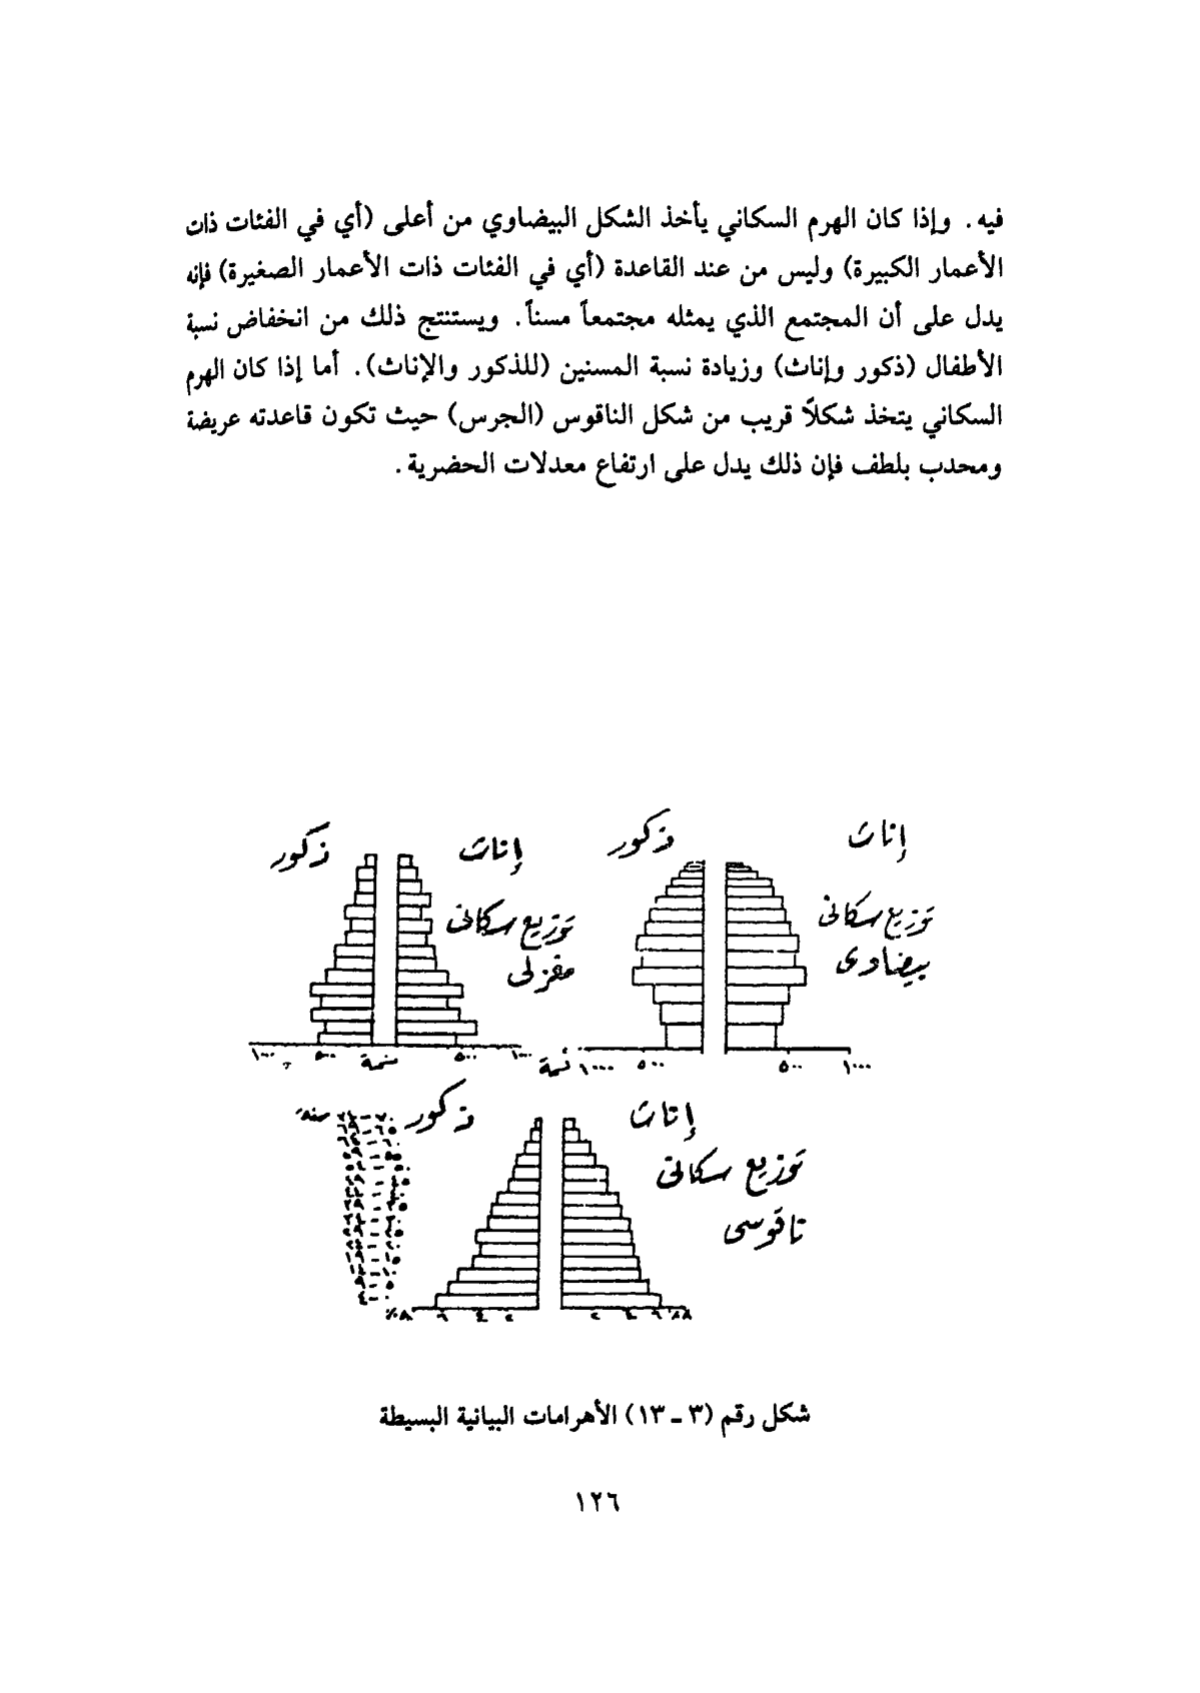 فيه. وإذا كان الهرم السكاني يأخذ الشكل البيضاوي من أعلى (أي في الفئات ذات
الأعمار الكبيرة) وليس من عند القاعدة (أي في الفئات ذات الأعمار الصغيرة) فإنه
يدل على أن المجتمع الذي يمثله مجتمعاً مسناً. ويستنتج ذلك من انخفاض نسبة
الأطفال (ذكور وإناث) وزيادة نسبة المسنين (للذكور والإناث). أما إذا كان الهرم
السكاني يتخذ شكلاً قريب من شكل الناقوس (الجرس) حيث تكون قاعدته عريضة
ومحدب بلطف فإن ذلك يدل على ارتفاع معدلات الحضرية.
إناث
ذكور
توزيع سكانى
بيضاوى
١٠٠٠ ٥٠٠ ٥٠٠ ١٠٠٠
إناث
ذكور
توزيع سكانى
مغزلى
١٠٠٠ ٥٠٠ ٥٠٠ ١٠٠٠
إناث
ذكور
توزيع سكانى
ناقوسى
٨ ٦ ٤ ٢ ٢ ٤ ٦ ٨
شكل رقم (٣ ـ ١٣) الأهرامات البيانية البسيطة
١٢٦